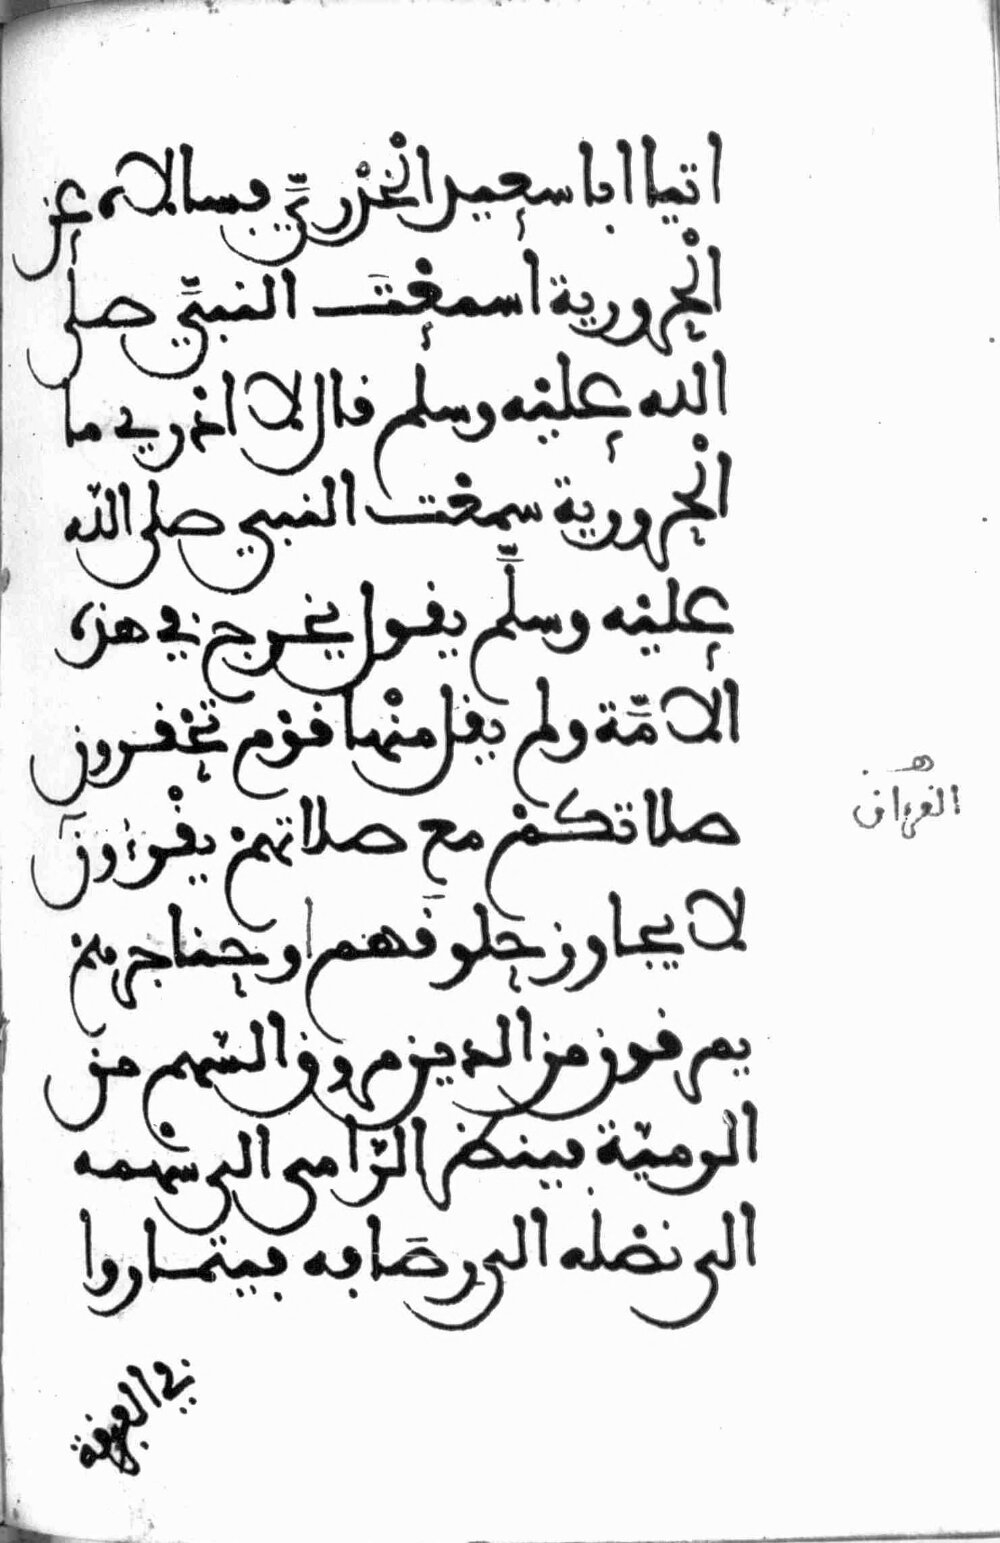 اتيا ابا سعيد الخدريّ فسالاه عن
الحرورية أسمعتَ النبيّ صلى
الله عليه وسلم قال لا ادري ما
الحرورية سمعت النبي صلى اللّه
عليه وسلَّم يقول يخرج في هذه
الامّة ولم يقل منها قوم تحقرون
صلاتكم مع صلاتهم يقرءون
لا يجاوز حلوقَهم او حناجرهم
يمرقون من الدين مروق السّهم من
الرميّة فينظر الرّامي الى سهمه
الى نصله الى رصَافه فيتماروا
هـ
القرءان
في الفوقة